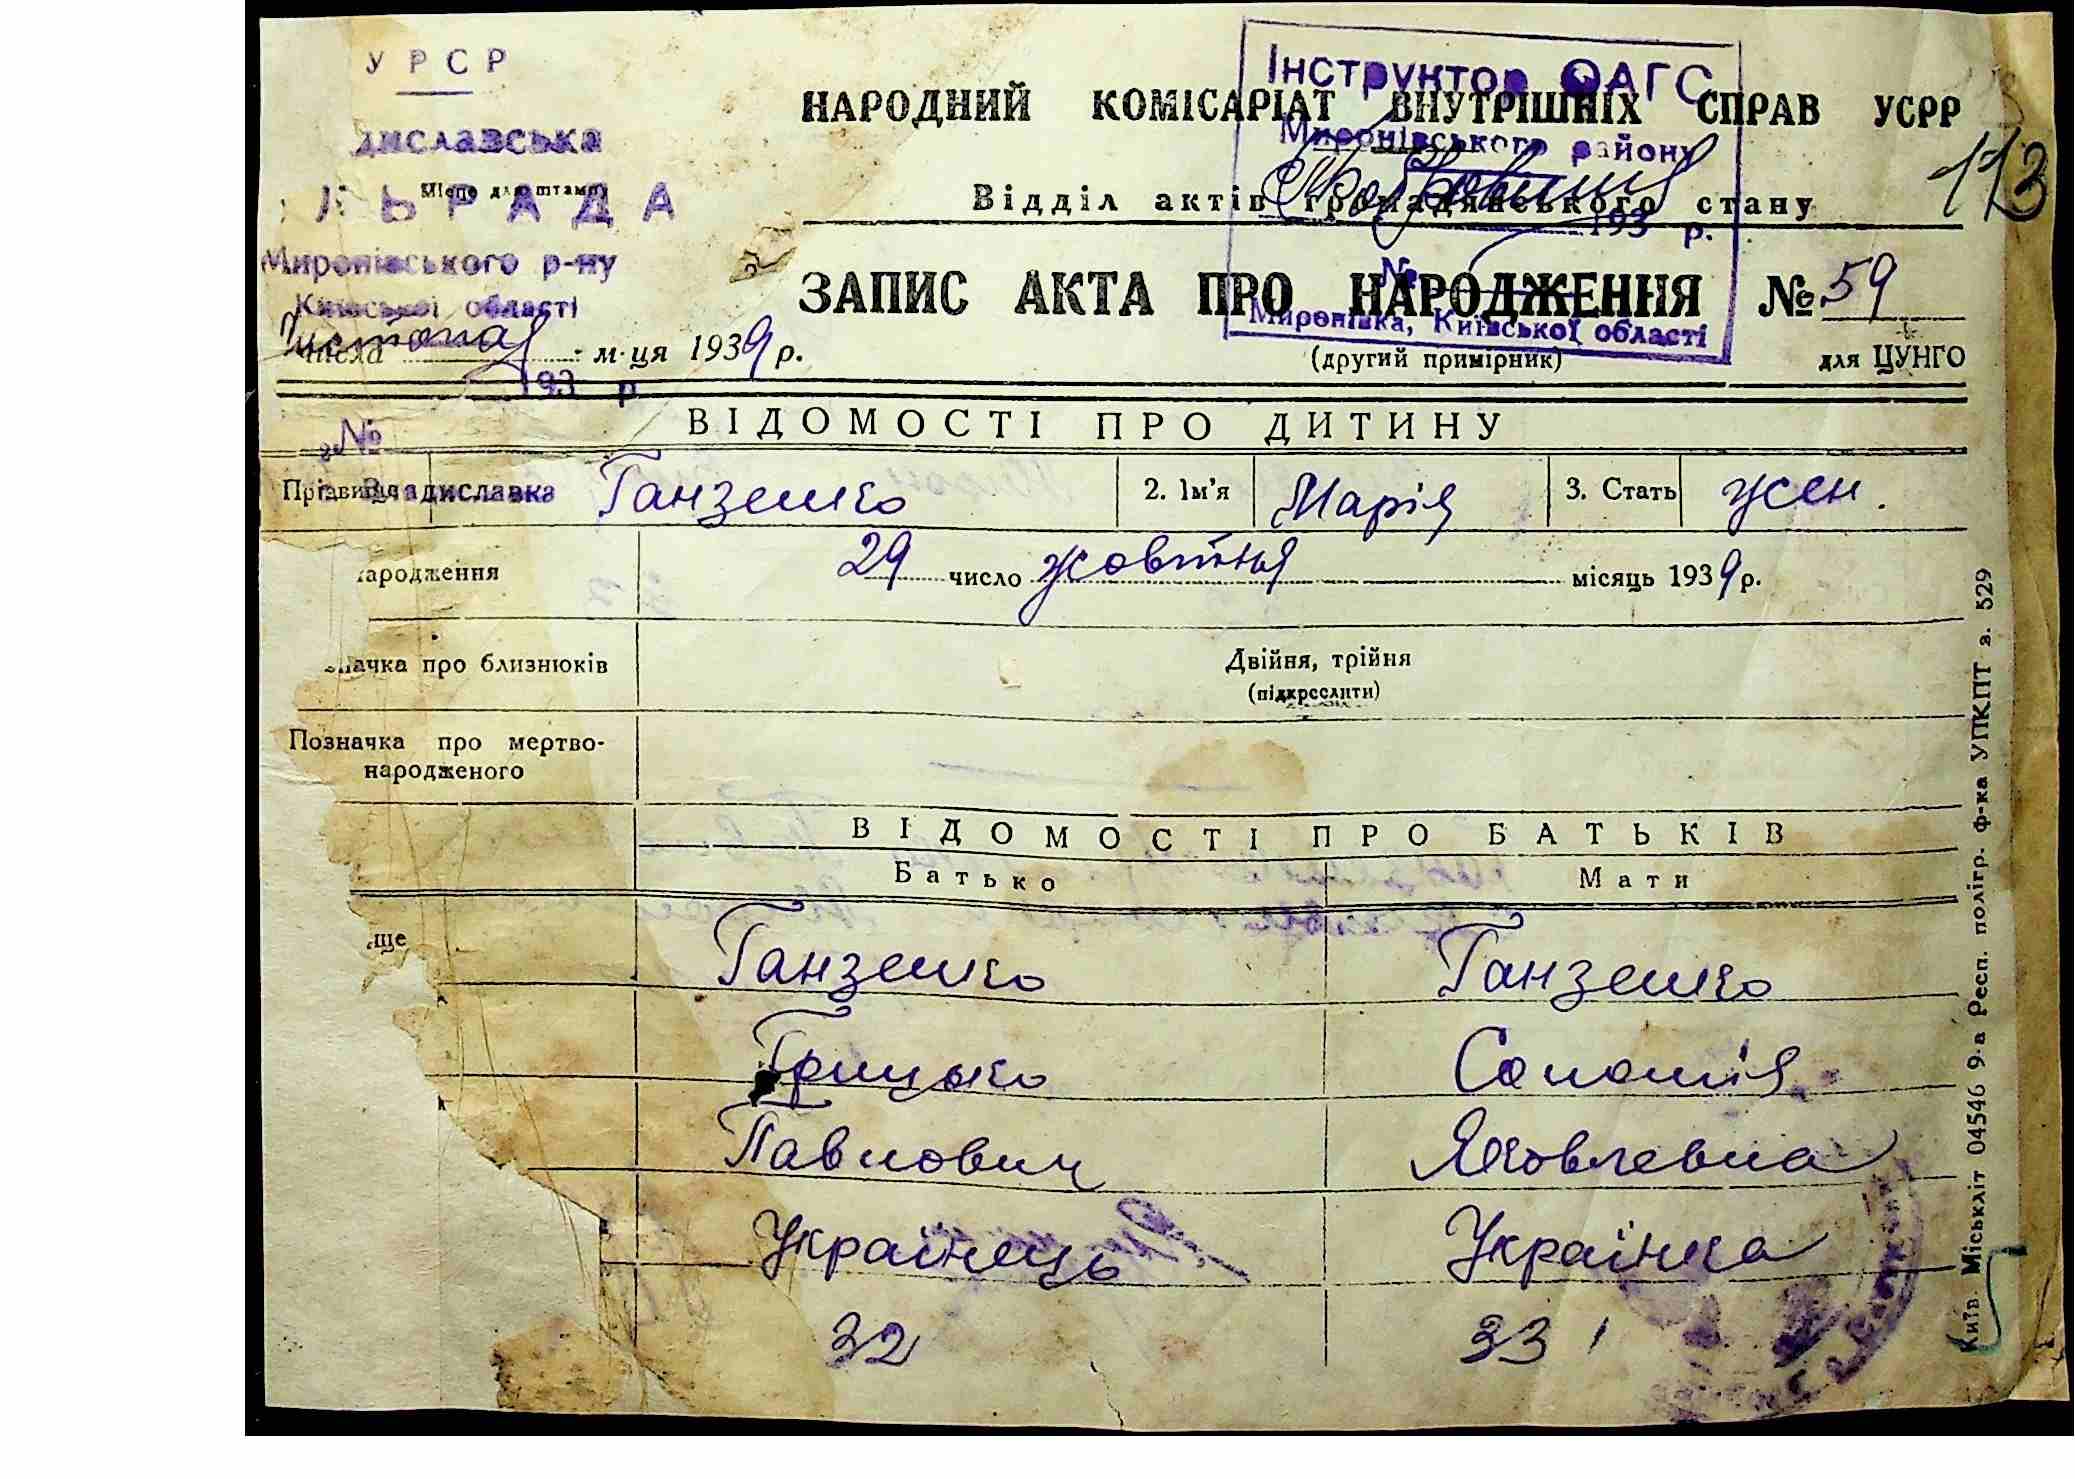 УРСР
диславська
Місце для штампу
ЛЬРАДА
Миронівського р-ну
Київської області
Числа Листопад м-ця 1939 р.
193 р.
№
Владиславка
Інструктор ОАГС
НАРОДНИЙ КОМІСАРІАТ ВНУТРІШНІХ СПРАВ УСРР
Миронівського району
113
Відділ актів громадянського стану
193 р.
ЗАПИС АКТА ПРО НАРОДЖЕННЯ № 59
№
Миронівка, Київської області
(другий примірник) для ЦУНГО
ВІДОМОСТІ ПРО ДИТИНУ
Прізвище Ганзенко 2. Ім’я Марія 3. Стать жен.
народження 29 число жовтня місяць 1939 р.
значка про близнюків Двійня, трійня
(підкреслити)
Позначка про мертво-
народженого
ВІДОМОСТІ ПРО БАТЬКІВ
Батько Мати
ще Ганзенко Ганзенко
Грицько Соломія
Павлович Яковлевна
Українець Українка
32 33
Київ. Міськліт 04546 9-а Респ. полігр. ф-ка УПКПТ з. 529